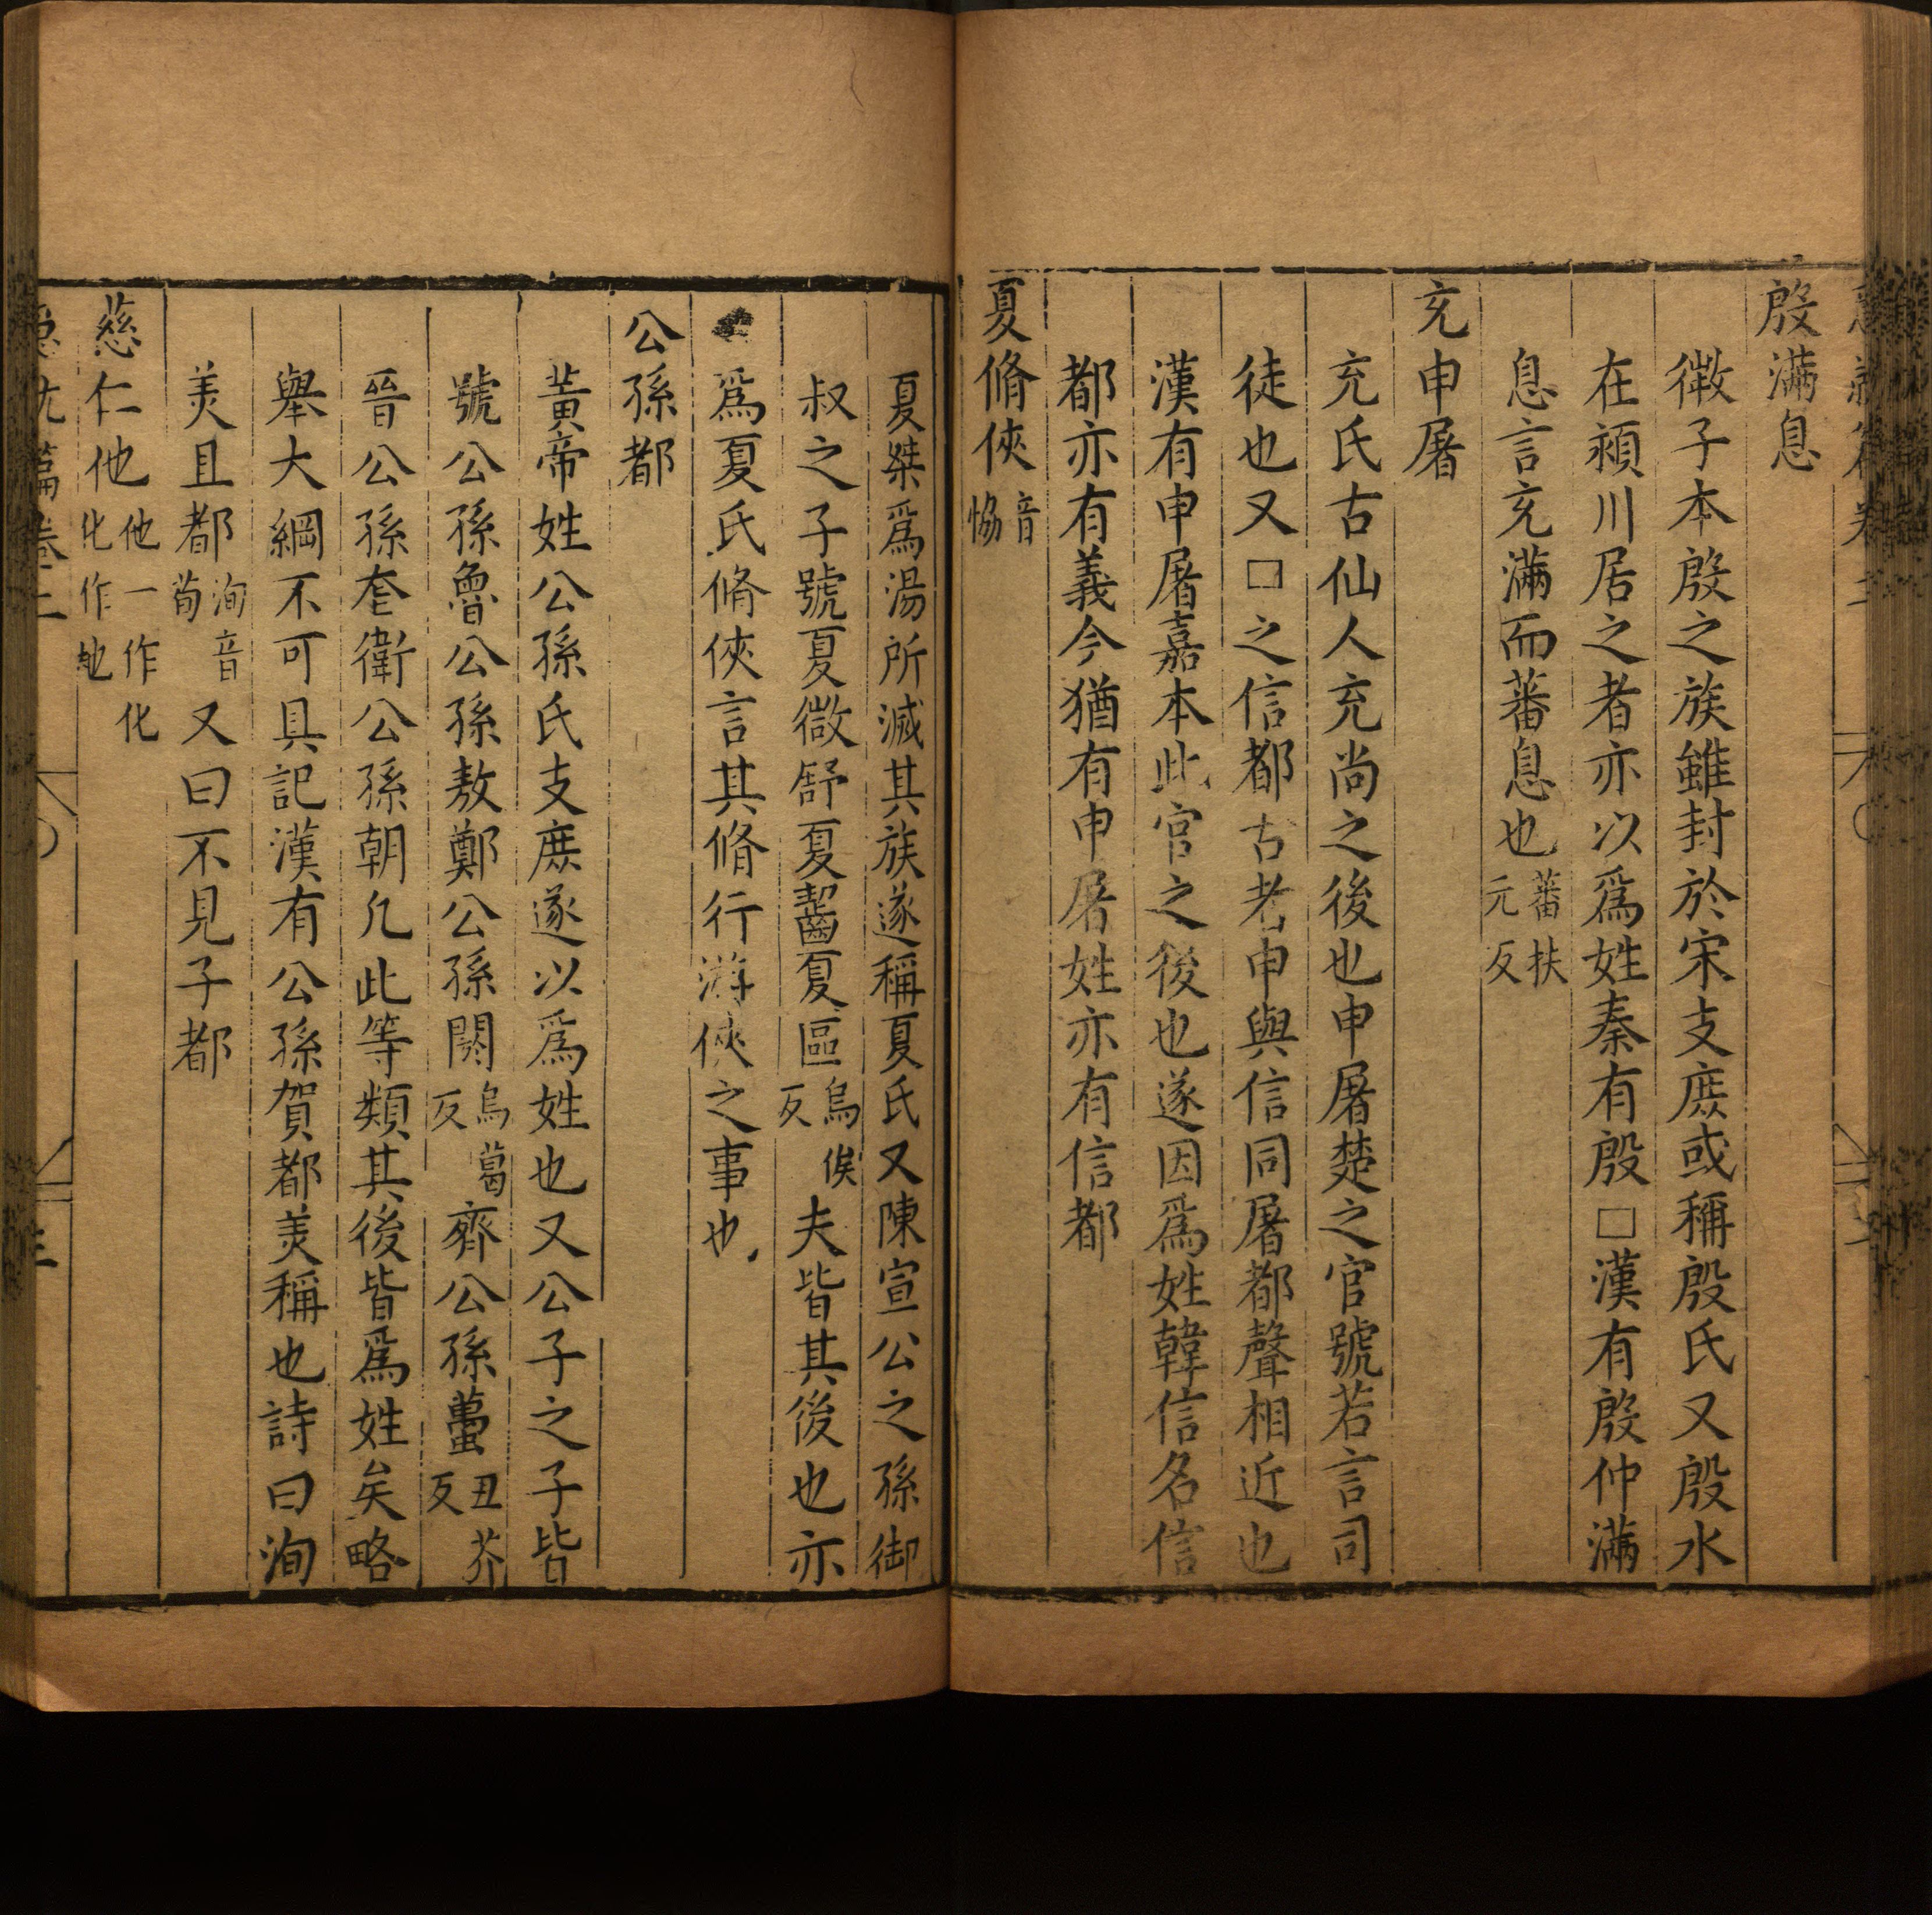 殷滿息
微子本殷之族雖封於宋支庶或稱殷氏又殷水
在潁川居之者亦以爲姓秦有殷□漢有殷仲滿
息言充滿而蕃息也蕃扶元反
充申屠
充氏古仙人充尚之後也申屠楚之官號若言司
徒也又□之信都古者申與信同屠都聲相近也
漢有申屠嘉本此官之後也遂因爲姓韓信名信
都亦有義今猶有申屠姓亦有信都
夏脩俠音恊
夏桀爲湯所滅其族遂稱夏氏又陳宣公之孫御
叔之子號夏徵舒夏齧夏區烏侯反夫皆其後也亦
爲夏氏脩俠言其脩行游俠之事也
公孫都
黃帝姓公孫氏支庶遂以爲姓也又公子之子皆
號公孫魯公孫敖鄭公孫閼烏葛反齊公孫蠆丑芥反
晉公孫厺衛公孫朝凡此等類其後皆爲姓矣略
舉大綱不可具記漢有公孫賀都美稱也詩曰洵
美且都洵音荀又曰不見子都
慈仁他他一作化化作虵
急就篇卷二